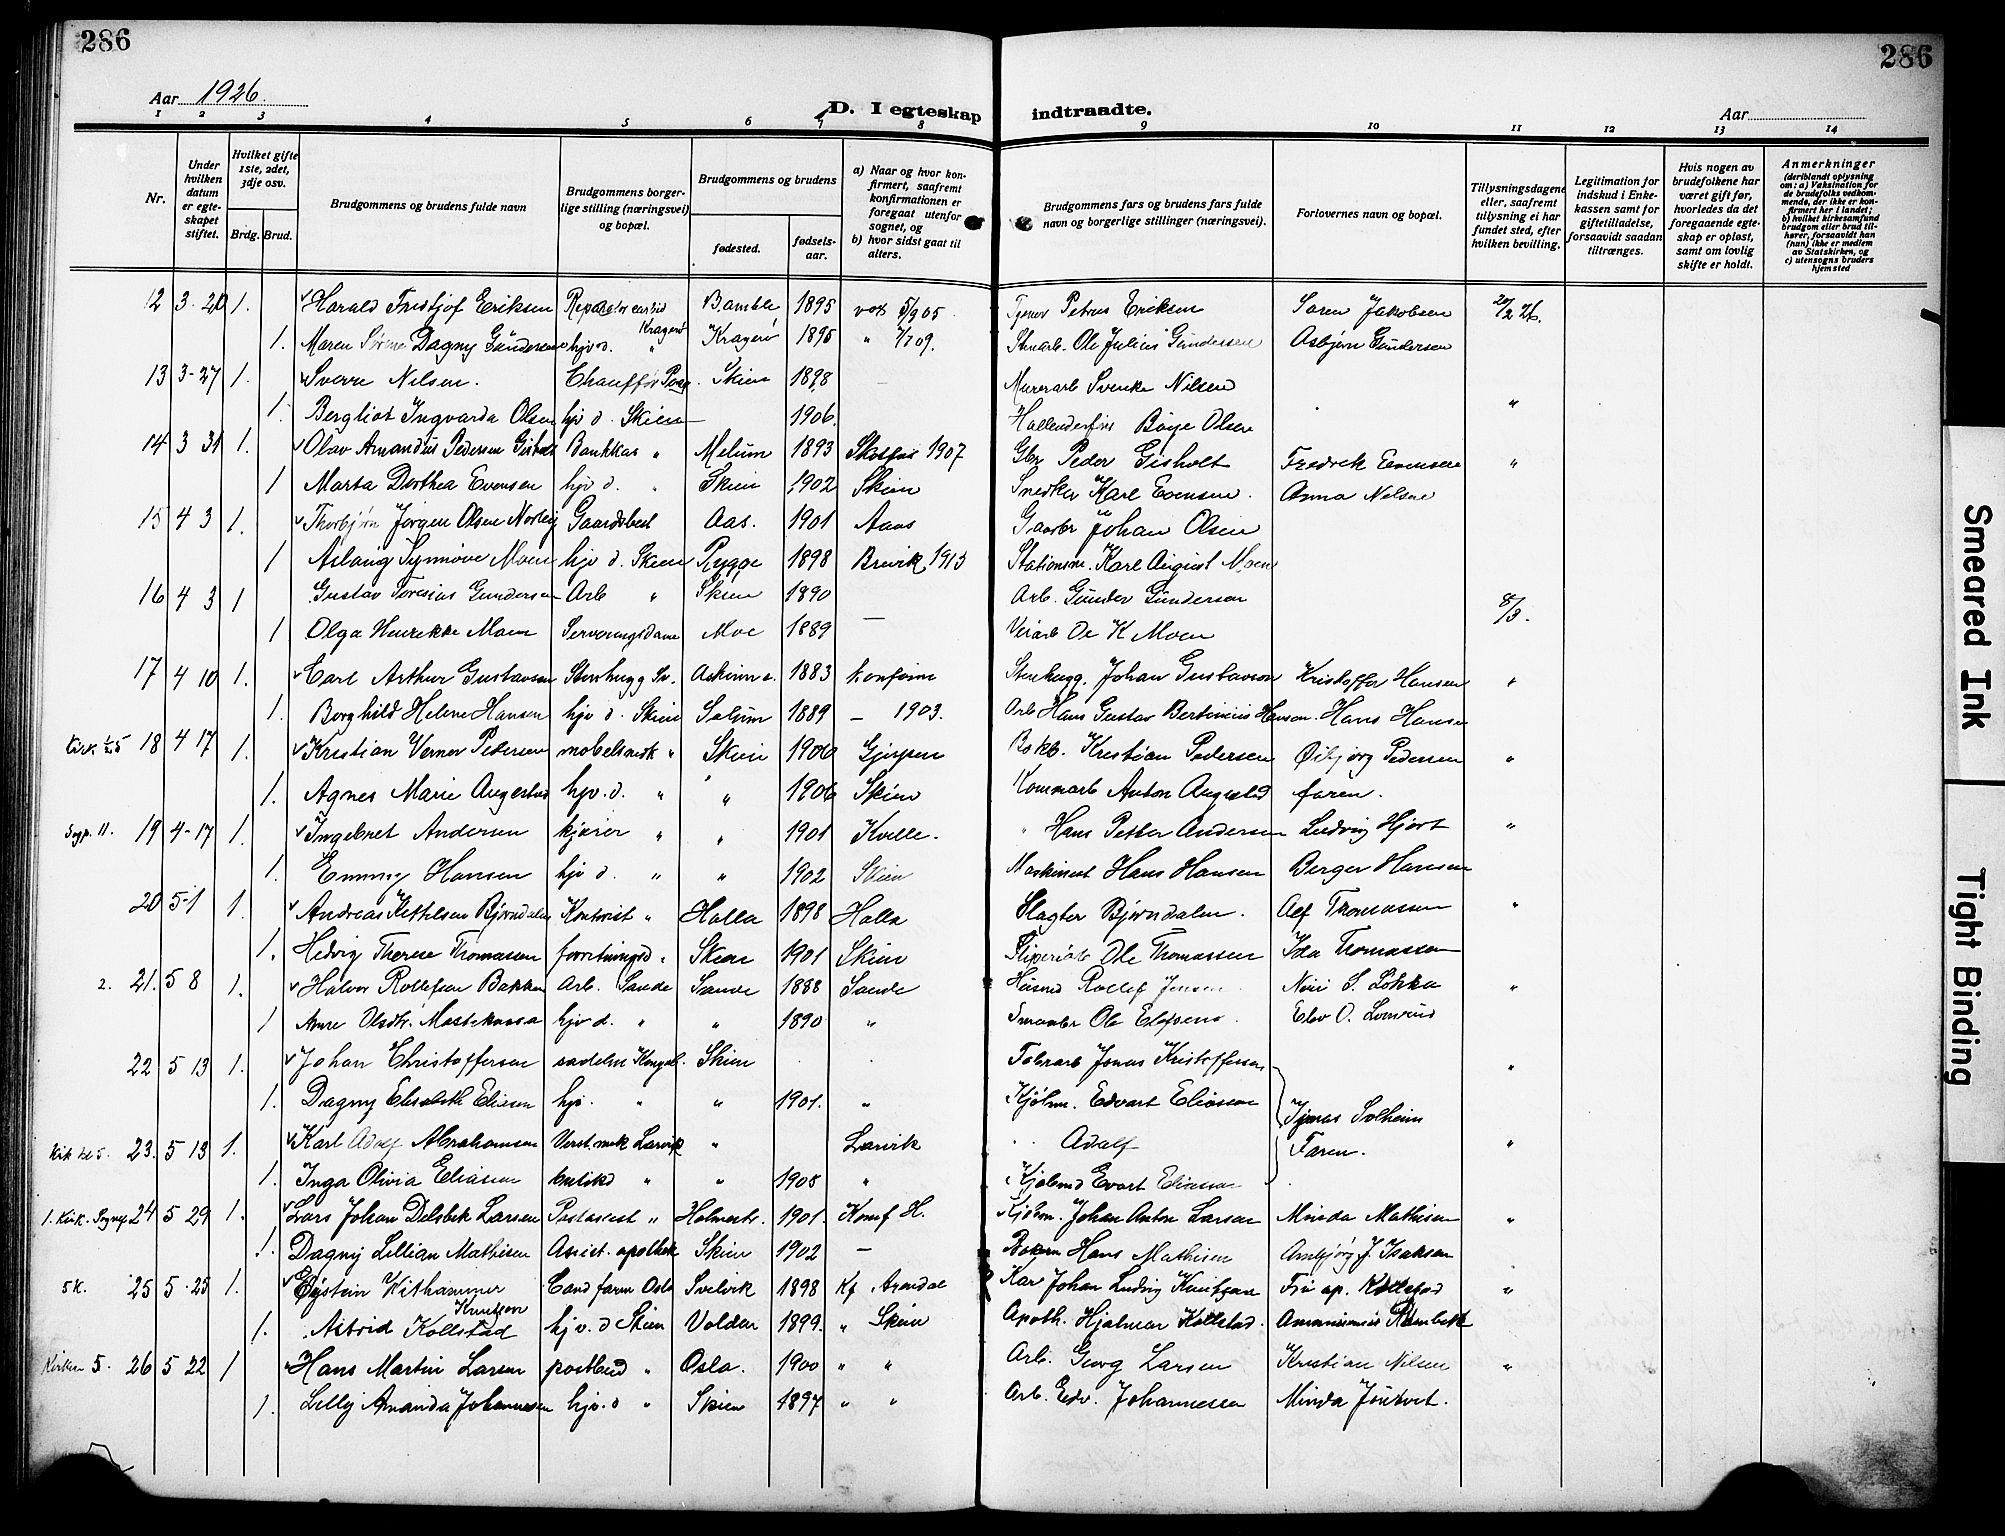 286
286
Aar 1926.
D. I egteskap indtraadte.
Aar
1 2 3 4 5 6 7 8 9 10 11 12 13 14
Nr.
Under hvilken datum er egteskapet stiftet.
Hvilket gifte 1ste, 2det, 3dje osv.
Brdg. Brud.
Brudgommens og brudens fulde navn
Brudgommens borgerlige stilling (næringsvei) og bopæl.
Brudgommens og brudens
fødested.
fødselsaar.
a) Naar og hvor konfirmert, saafremt konfirmationen er foregaat utenfor sognet, og
b) hvor sidst gaat til alters.
Brudgommens fars og brudens fars fulde navn og borgerlige stillinger (næringsvei).
Forlovernes navn og bopæl.
Tillysningsdagene eller, saafremt tillysning ei har fundet sted, efter hvilken bevilling.
Legitimation for indskud i Enkekassen samt for giftetilladelse, forsaavidt saadan tiltrænges.
Hvis nogen av brudefolkene har været gift før, hvorledes da det foregaaende egteskap er opløst, samt om lovlig skifte er holdt.
Anmerkninger (deriblandt oplysning om: a) Vaksination for de brudefolks vedkommende, der ikke er konfirmert her i landet; b) hvilket kirkesamfund brudgom eller brud tilhører, forsaavidt han (hun) ikke er medlem av Statskirken, og c) utensogns bruders hjemsted
12 3-20 1. Harald Fridtjof Eriksen Bamble 1895 5/9 05 Petrus Eriksen Søren Jakobsen 20/2 26.
1. Maren Dagny Gundersen hjv d. " Kragerø Kragerø 1895 " 709. Ole Julius Gundersen Asbjørn Gundersen
13 3-27 1. Sverre Nilsen. Chauffør Skien 1898 Murerarb Svenke Nilsen
1. Bergliot Ingvarda Olsen hjv d. Skien 1906. Olsen "
14 3 31 1. Olav Amandus Pedersen Bankkas " Melum 1893 1907 Gbr Peder Gisholt Fredrik Evensen "
1 Marta Dorthea Evensen hjv d. " Skien 1902 Skien Snedker Karl Evensen. Anna Nilsen
15 4 3 1. Thorbjørn Jørgen Olsen Aas. 1901 Aas Gaardbr Johan Olsen
1 Aslaug Synnøve Moen hjv d. Skien Rygge 1898 Brevik 1913 Karl August Moen
16 4 3 1 Gustav Gundersen Arb " Skien 1890 Arb. Gunder Gundersen 8/3.
1 Olga Henrikke Moen Serveringsdame Moe 1889 — K Moen
17 4 10 1. Carl Arthur Gustavsen Stenhugg Sv. 1883 konfirm Stenhugg. Johan Gustavson Kristoffer Hansen "
1. Borghild Helene Hansen hjv d. Skien Solum 1889 — 1903. Arb Hans Gustav Bertinius Hansen. Hans Hansen
18 4 17 1. Kristian Verner Pedersen " Skien 1900 Gjerpen Kristian Pedersen Pedersen "
1. Agnes Marie Augestad hjv. d. " " 1906 Skien Anton Augestad faren.
19 4-17 1. Ingebret Andersen kjører " " 1901 Kville. " Hans Petter Andersen Ludvig Hjort "
1. Emmy Hansen hjv d. " " 1902 Skien Maskinist Hans Hansen Berger Hansen
20 5-1 1. Andreas Kethilsen Bjørndalen Kontorist " Holla 1898 Holla Slagter Bjørndalen. Alf Thomassen "
1. Hedvig Therese Thomassen Skien 1901 Skien Ole Thomassen Ida Thomassen
2. 21. 5 8 1. Halvor Rollefsen Bakken Arb. Sande Sande 1888 Sande Husmd Rollef Jensen "
1 Anne Olsdtr. hjv d. " " 1890 " Ole Elefsens.
22 5 13 1. Johan Christoffersen Skien Jonas Kristoffersen "
1. Dagny Elisabeth Eliasen hjv. " " 1901. " Kjølm. Edvart Eliasen
23. 5 13 1. Karl Adolf Abrahamsen Larvik " Larvik Adolf Solheim "
1. Inga Olivia Eliasen " " 1905 " Evart Eliassen Faren.
24 5 29 1. Lars Johan Larsen " Holmestr. 1901. Konf H. Kjølm. Johan Anton Larsen Minda Mathisen "
1. Dagny Lillian Mathisen Assist. apothek Skien 1902 — Hans Mathisen J. Isaksen
5 K. 25 5-25 1. Øistein Withammer Knutzon Cand farm Oslo Svelvik 1898 Kf Arendal Johan Ludvig Fru ap. Kollstad "
1. Astrid Kollstad hjv. d Skien Volden 1899. " Skien Apoth. Hjalmar Kollstad.
Kirken 5. 26 5 22 1 Hans Martin Larsen postbud " Oslo. 1900 " " Arb. Georg Larsen Kristian Nilsen "
1. Lilly Amanda Johannessen hjv. d " Skien 1897 " " Arb. Edv. Johannessen Minda
Smeared Ink
Tight Binding